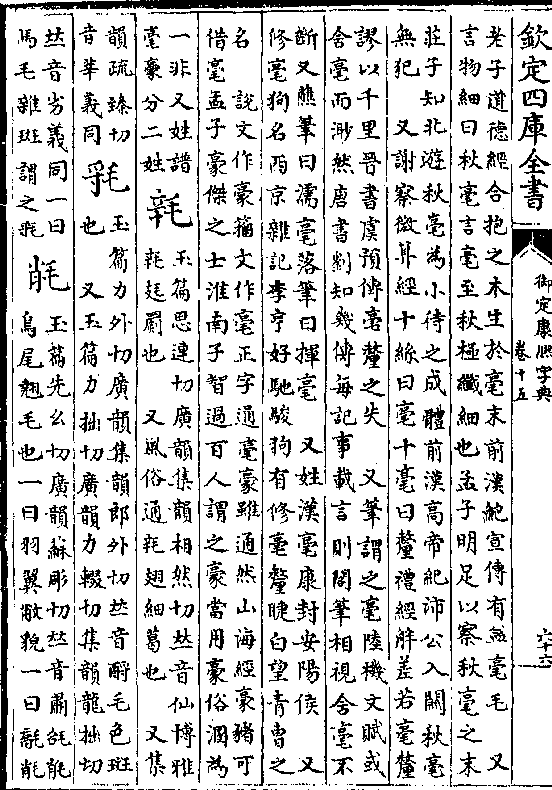 欽定四庫全書
御定康熙字典
卷十五
六十六
老子道德經合抱之木生於毫末前漢鮑宣傳有益毫毛　又
言物細曰秋毫言毫至秋極纖細也孟子明足以察秋毫之末
莊子知北遊秋毫為小待之成體前漢高帝紀沛公入關秋毫
無犯　又謝察微算經十絲曰毫十毫曰釐禮經解差若毫釐
謬以千里晉書虞預傳毫釐之失　又筆謂之毫陸機文賦或
含毫而渺然唐書劉知幾傳每記事載言則閣筆相視含毫不
斷又醮筆曰濡毫落筆曰揮毫　又姓漢毫康封安陽侯　又
修毫狗名西京雜記李亨好馳駿狗有修毫釐睫白望青曹之
名　說文作豪籀文作毫正字通毫豪雖通然山海經豪豬可
借毫孟子豪傑之士淮南子智過百人謂之豪當用豪俗溷為
一非又姓譜
毫豪分二姓
㲔
玉篇思連切廣韻集韻相然切𠀤音仙博雅
㲔罽也　又風俗通㲔翅細葛也　又集
韻疏臻切
音莘義同
㲕
玉篇力外切廣韻集韻郎外切𠀤音酹毛色斑
也　又玉篇力拙切廣韻力輟切集韻龍拙切
𠀤音劣義同一曰
馬毛雜斑謂之㲕
㲖
玉篇先幺切廣韻蘇彫切𠀤音肅㲖
鳥尾翹毛也一曰羽翼敝貌一曰㲖